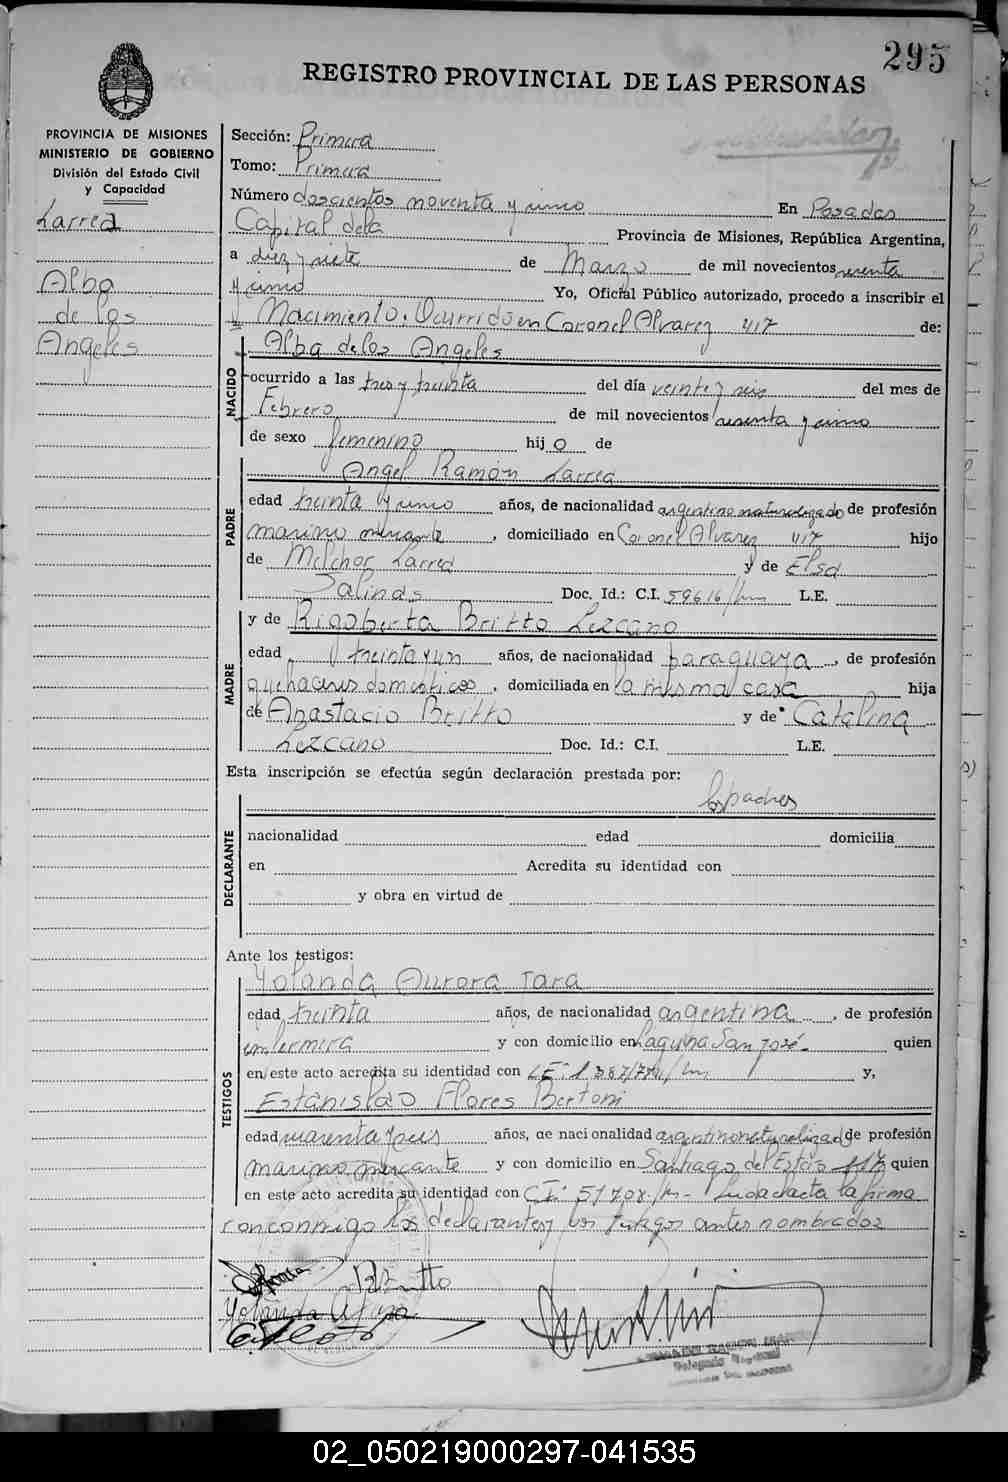 295
REGISTRO PROVINCIAL DE LAS PERSONAS
PROVINCIA DE MISIONES
MINISTERIO DE GOBIERNO
División del Estado Civil
y Capacidad
Larrea
Alba
de los
Angeles
Sección: Primera
Tomo: Primera
Número doscientos noventa y uno En Posadas
Capital dela Provincia de Misiones, República Argentina,
a diez y siete de Marzo de mil novecientos sesenta
y uno Yo, Oficial Público autorizado, procedo a inscribir el
Nacimiento. Ocurrido en Coronel Alvarez 417 de:
NACIDO
Alba delos Angeles
ocurrido a las tres y treinta del día veinte y seis del mes de
Febrero de mil novecientos sesenta y uno
de sexo femenino hijo de
PADRE
Angel Ramón Larrea
edad treinta y uno años, de nacionalidad argentino naturalizado de profesión
marino mercante, domiciliado en Coronel Alvarez 417 hijo
de Melchor Larrea y de Elsa
Salinas Doc. Id.: C.I. 59616/ L.E.
MADRE
y de Rigoberta Britto Lezcano
edad treinta y un años, de nacionalidad paraguaya, de profesión
quehaceres domesticos, domiciliada en la misma casa hija
de Anastacio Britto y de Catalina
Lezcano Doc. Id.: C.I. L.E.
Esta inscripción se efectúa según declaración prestada por:
los padres
DECLARANTE
nacionalidad edad domicilia
en Acredita su identidad con
y obra en virtud de
Ante los testigos:
TESTIGOS
Yolanda Aurora Jara
edad treinta años, de nacionalidad argentina, de profesión
enfermera y con domicilio en Laguna San José- quien
en este acto acredita su identidad con LE: y,
Estanislao Flores Bertoni
edad cuarenta y seis años, de nacionalidad argentino naturalizado de profesión
marino mercante y con domicilio en Santiago del Estero quien
en este acto acredita su identidad con C.I: 51708 Leida el acta la firma
con conmigo los declarantes y los testigos antes nombrados
Britto
Yolanda A Jara
Delegado
02_050219000297-041535